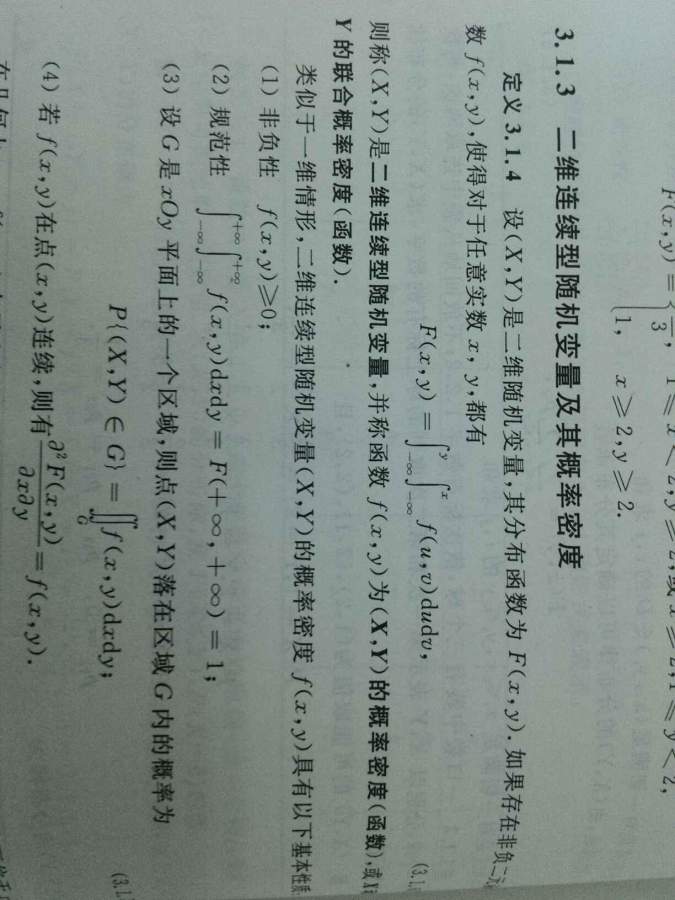 F(x,y)={ —/3, 1≤x<2,y≥2,或x≥2,1≤y<2,
1, x≥2,y≥2.
3.1.3 二维连续型随机变量及其概率密度
定义3.1.4 设(X,Y)是二维随机变量,其分布函数为F(x,y).如果存在非负二元
数f(x,y),使得对于任意实数x,y,都有
F(x,y)=∫_{-∞}^{y}∫_{-∞}^{x}f(u,v)dudv, (3.1.
则称(X,Y)是二维连续型随机变量,并称函数f(x,y)为(X,Y)的概率密度(函数),或X
Y的联合概率密度(函数).
类似于一维情形,二维连续型随机变量(X,Y)的概率密度f(x,y)具有以下基本性质
(1) 非负性 f(x,y)≥0;
(2) 规范性 ∫_{-∞}^{+∞}∫_{-∞}^{+∞}f(x,y)dxdy=F(+∞,+∞)=1;
(3) 设G是xOy平面上的一个区域,则点(X,Y)落在区域G内的概率为
P{(X,Y)∈G}=∬_G f(x,y)dxdy; (3.1.
(4) 若f(x,y)在点(x,y)连续,则有∂²F(x,y)/∂x∂y=f(x,y).